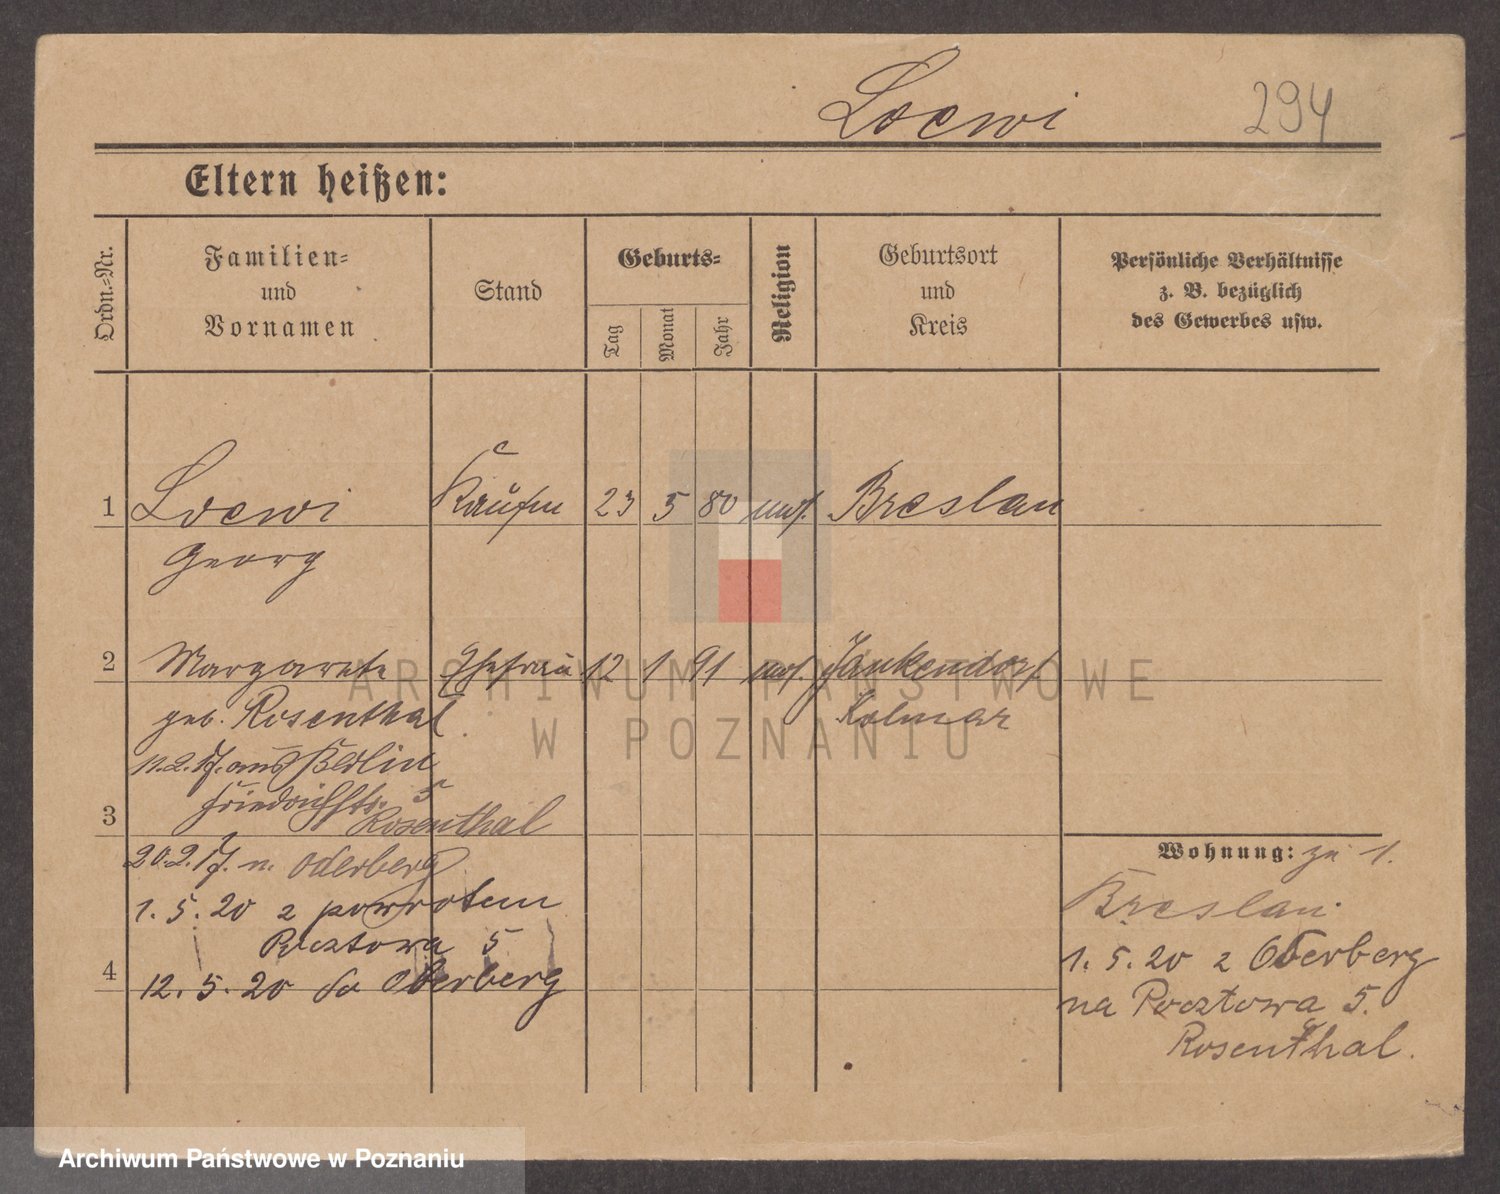 Loewi 294
Eltern heißen:
Ordn.-Nr.
Familien- und Vornamen
Stand
Geburts-
Tag
Monat
Jahr
Religion
Geburtsort und Kreis
Persönliche Verhältnisse z. B. bezüglich des Gewerbes usw.
1 Loewi Kaufm 23 5 80 mos. Breslau
Georg
2 Margarete Ehefrau 12 1 91 mos. Jankendorf
geb. Rosenthal Kolmar
11.2.17. aus Berlin
Friedrichstr. 5
3 Rosenthal
20.2.17. n. Oderberg
1.5.20 z powrotem
Pocztowa 5
4 12.5.20 do Oderberg
Wohnung: zu 1.
Breslau.
1.5.20 z Oderberg
na Pocztowa 5.
Rosenthal.
ARCHIWUM PAŃSTWOWE
W POZNANIU
Archiwum Państwowe w Poznaniu